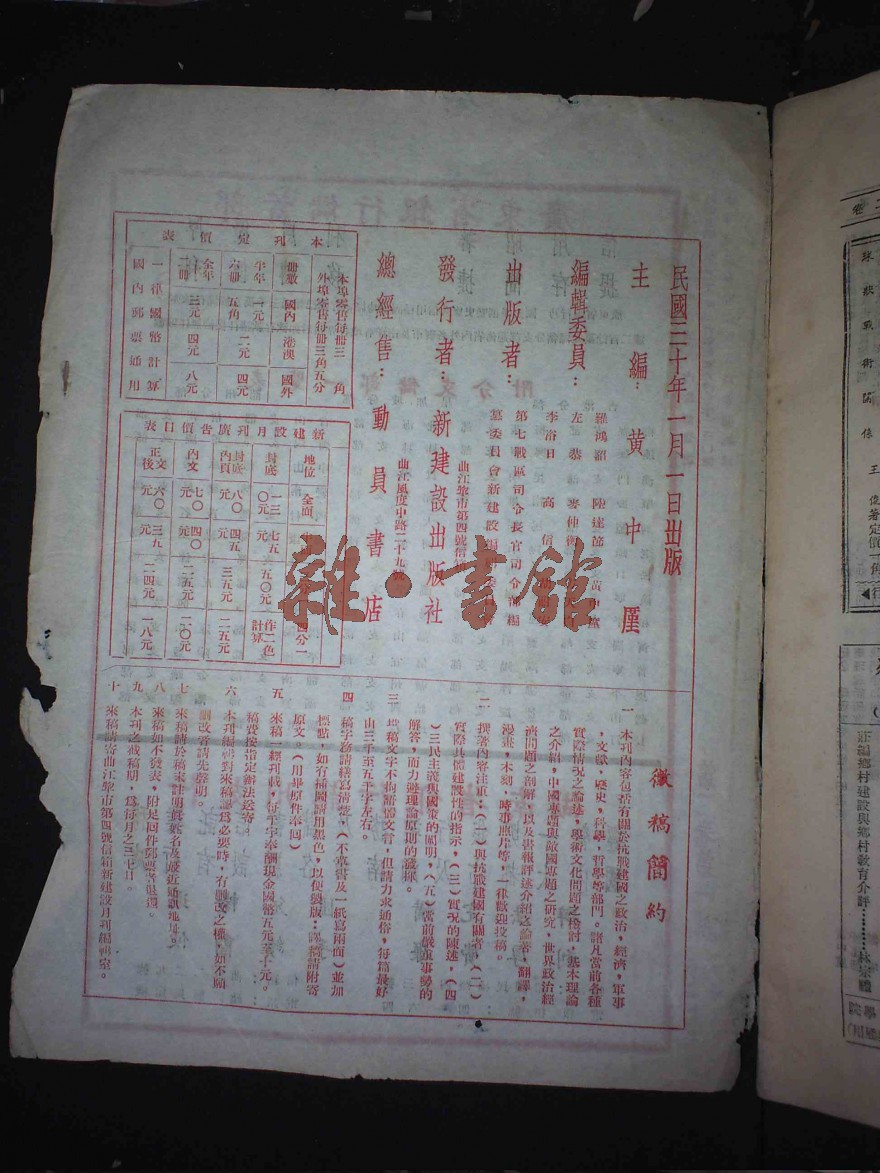 民國三十年一月一日出版
主編：黄中廑
編輯委員：
羅鴻詔
左恭
李洛日
高信
出版者：
第七戰區司令長官司令部編
發行者：新建設出版社
曲江犂市第四號信
總經售：動員書店
曲江風度中路二十九號
本刊定價表
本埠零售每册三角
外埠零售每册三角五分
册數 國内 港澳 國外
半年六册 一元五角 二元 四元
全年 三元 四元 八元
一律國幣計算
國内郵票通用
新建設月刊廣告價目表
地位 全面
封底 一三〇元 七五元 五〇元 作二色計算
封底内頁 八〇元 四五元 三五元 二五元
内文 七〇元 四〇元 二五元 二〇元
正文後 六〇元 三五元 二四元 一八元
雜·書館
徵稿簡約
一 本刊内容包括有關於抗戰建國之政治，經濟，軍事
，文獻，歷史，科學，哲學等部門。諸凡當前各種
實際情况之論述，學術文化問題之檢討，基本理論
之介紹，中國專題與敵國專題之研究，世界政治經
濟問題之剖解，以及書報評述介紹之論著，翻譯，
漫畫，木刻，時事照片等，一律歡迎投稿。
二 撰著内容注重：（一）與抗戰建國有關者，（二）
實際具體建設性的指示，（三）實况的陳述，（四
）三民主義與國策的闡明，（五）當前嚴重事勢的
解答，而力避理論原則的發揮。
三 投稿文字不拘語體文言，但請力求通俗，每篇最好
由三千至五千字左右。
四 稿字務請繕寫清楚，（不草書及一紙寫兩面）並加
標點，如有插圖請用黑色，以便製版；譯稿請附寄
原文。（用畢原件奉囘）
五 來稿一經刊載，每千字奉酬現金國幣五元至十元。
稿費按指定辦法送寄
六 本刊編輯對來稿認爲必要時，有删改之權，如不願
删改者請先聲明。
七 來稿請於稿末註明真姓名及最近通訊地址。
八 來稿如不發表，附足囘件郵票者退還。
九 本刊之截稿期，爲每月之二十日。
十 來稿請寄曲江犂市第四號信箱新建設月刊編輯室。
球狀戰術
王俊著定價一角
莊編鄉村建設與鄉村教育介評………林宗禮